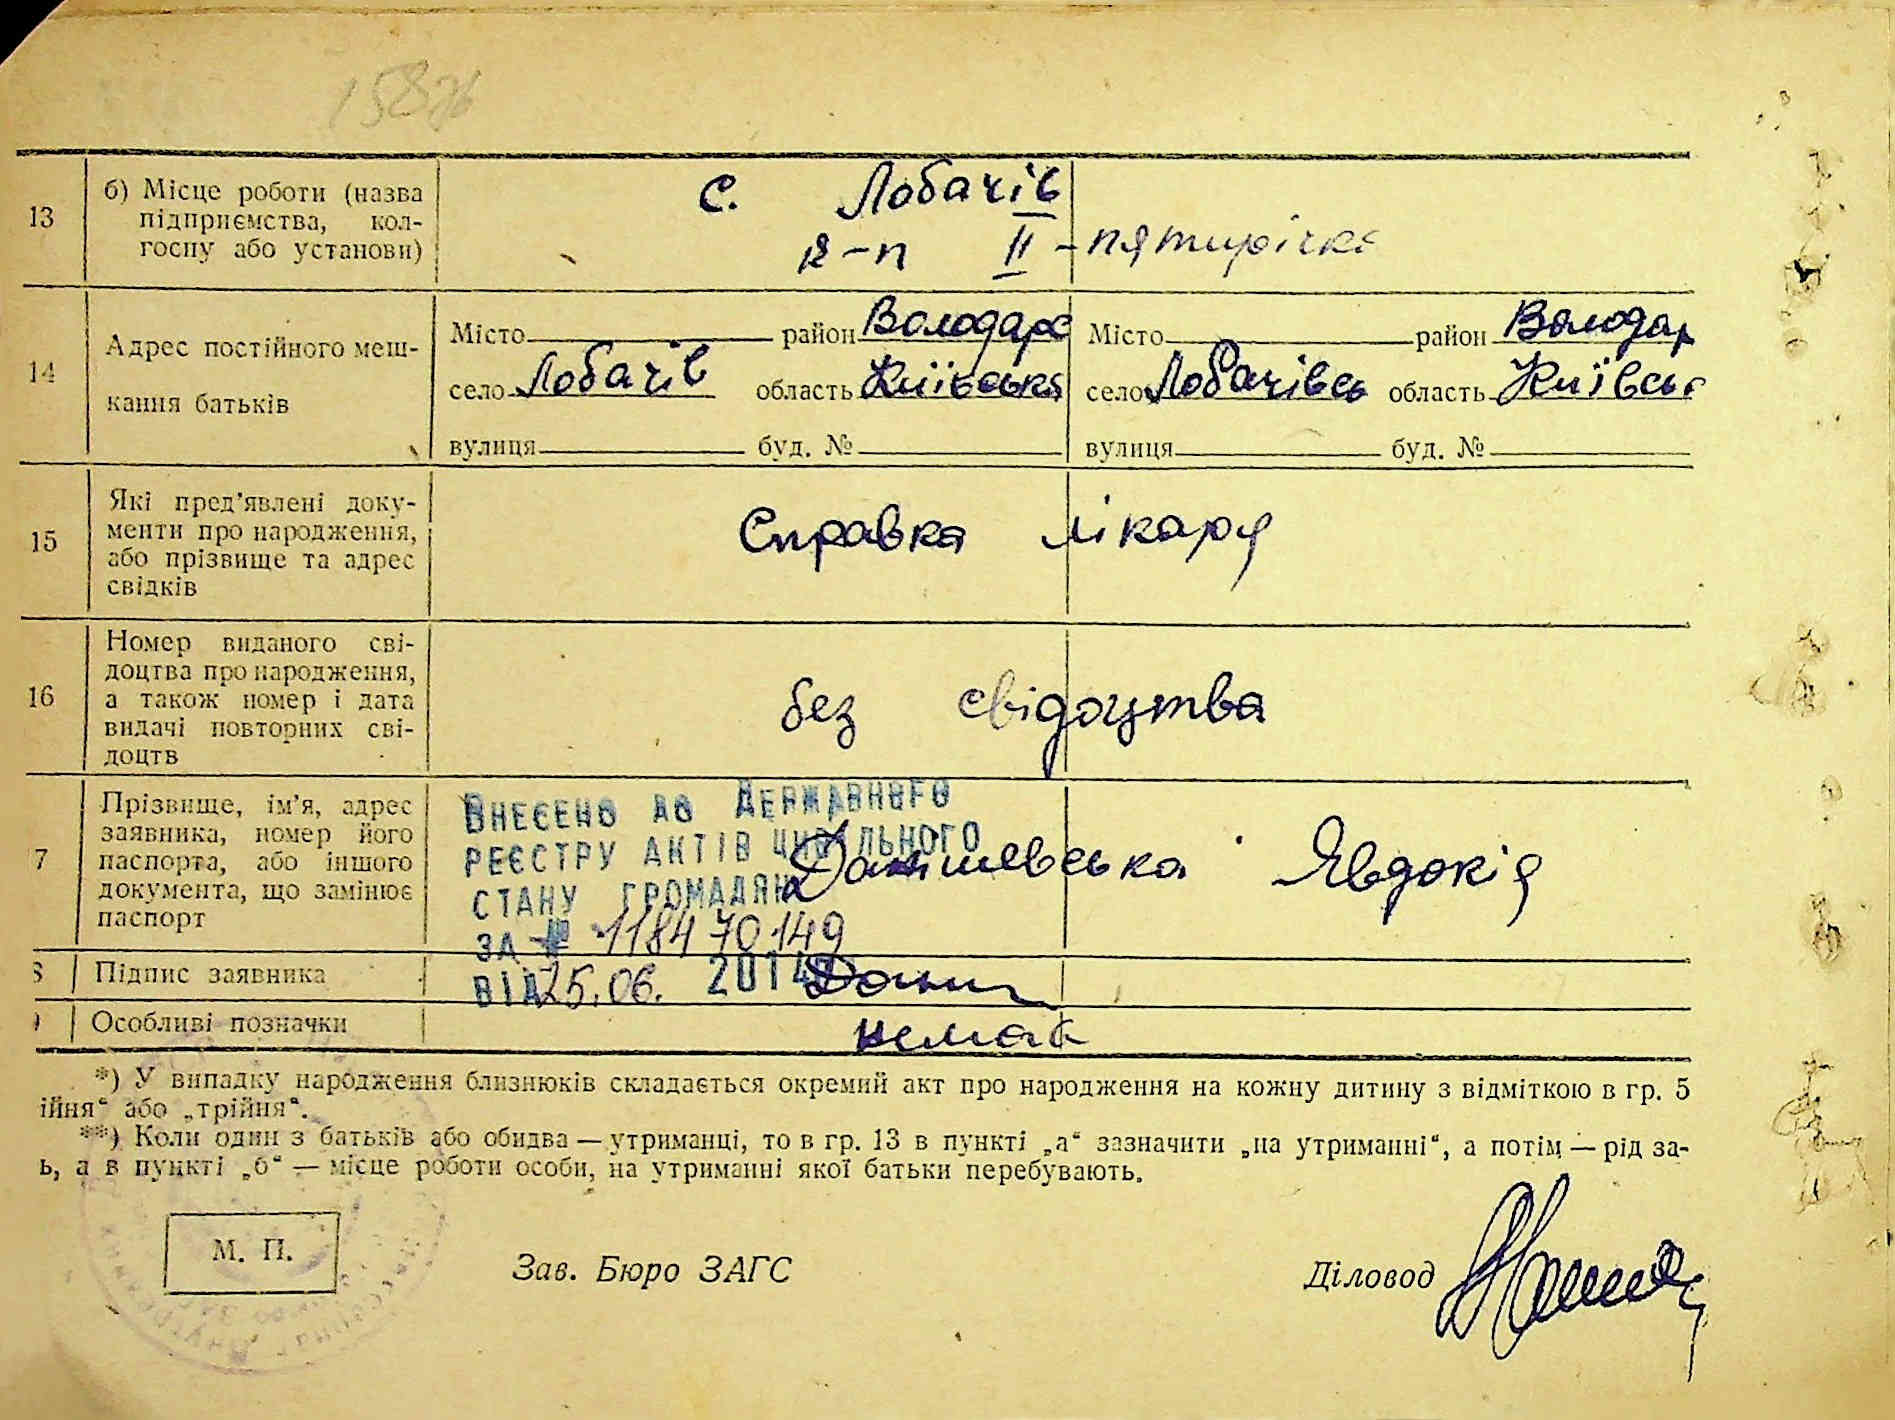 158зв
13 б) Місце роботи (назва підприємства, кол-госпу або установи) с. Лобачів
к-п II - пятирічка
14 Адрес постійного меш-кання батьків
Місто район Володарс Місто район Володар
село Лобачів область Київська село Лобачівсь область Київськ
вулиця буд. № вулиця буд. №
15 Які пред'явлені доку-
менти про народження,
або прізвище та адрес
свідків
Справка лікаря
16 Номер виданого сві-
доцтва про народження,
а також номер і дата
видачі повторних сві-
доцтв
без свідоцтва
7 Прізвище, ім'я, адрес
заявника, номер його
паспорта, або іншого
документа, що замінює
паспорт
Внесено до Державного
реєстру актів цивільного
стану громадян
за № 118470149
від 25.06. 2014
Данишевська Явдокія
Підпис заявника Дани
Особливі позначки немає
*) У випадку народження близнюків складається окремий акт про народження на кожну дитину з відміткою в гр. 5
ійня" або „трійня".
**) Коли один з батьків або обидва — утриманці, то в гр. 13 в пункті „а" зазначити „на утриманні", а потім — рід за-
ь, а в пункті „б" — місце роботи особи, на утриманні якої батьки перебувають.
М. П. Зав. Бюро ЗАГС Діловод